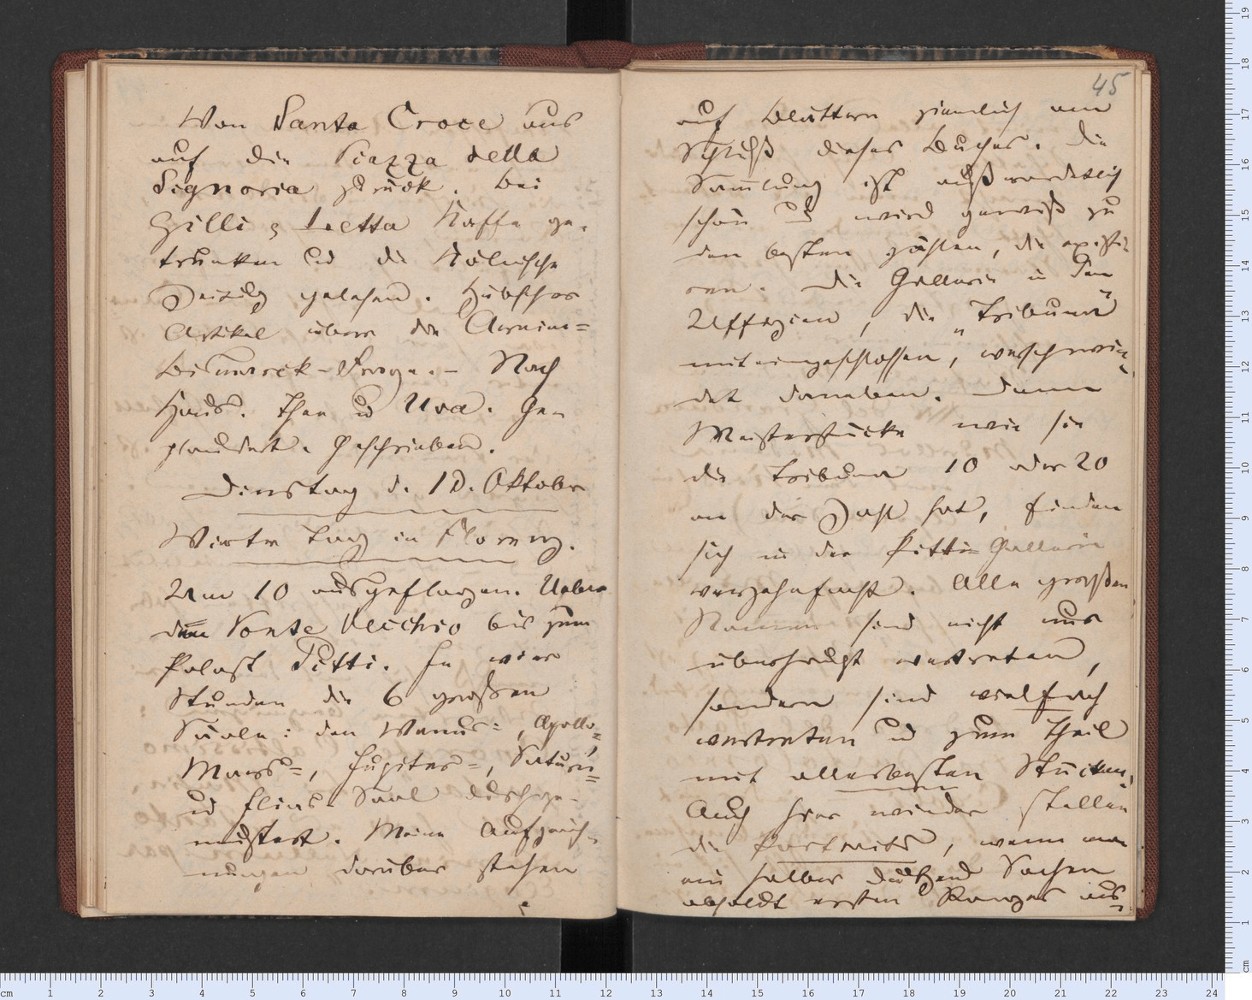 Von Santa Croce aus
auf die Piazza della
Signoria zurück. Bei
Gilli & Letta Kaffe ge-
trunken und die Kölnische
Zeitung gelesen. Hübscher
Artikel über die Arnim-
Bismarck-Frage. – Nach
Haus. Thee und Uva. Ge-
plaudert. Geschrieben.
Dinstag d. 13. Oktober
Vierter Tag in Florenz.
Um 10 ausgeflogen. Ueber
den Ponte Vecchio bis zum
Palast Pitti. In vier
Stunden die 6 großen
Säale: den Venus-, Apollo-,
Mars-, Jupiter-, Saturn-
und Ilias Saal durchge-
mustert. Meine Aufzeich-
nungen darüber stehen
45
auf Blättern ziemlich am
Schluß dieses Buches. Die
Samlung ist außerordentlich
schön und wird gewiß zu
den besten zählen, die existi-
ren. Die Gallerie in den
Uffizien, die „Tribuna"
miteingeschlossen, verschwin-
det daneben. Denn
Meisterstücke wie sie
die Tribuna 10 oder 20
an der Zahl hat, finden
sich in der Pitti-Gallerie
verzehnfacht. Alle großen
Namen sind nicht nur
überhaupt vertreten,
sondern sind vielfach
vertreten und zum Theil
mit allerbesten Stücken.
Auch hier wieder stellen
die Portraits, wenn man
ein halbes Dutzend Sachen
abzieht ersten Ranges aus-